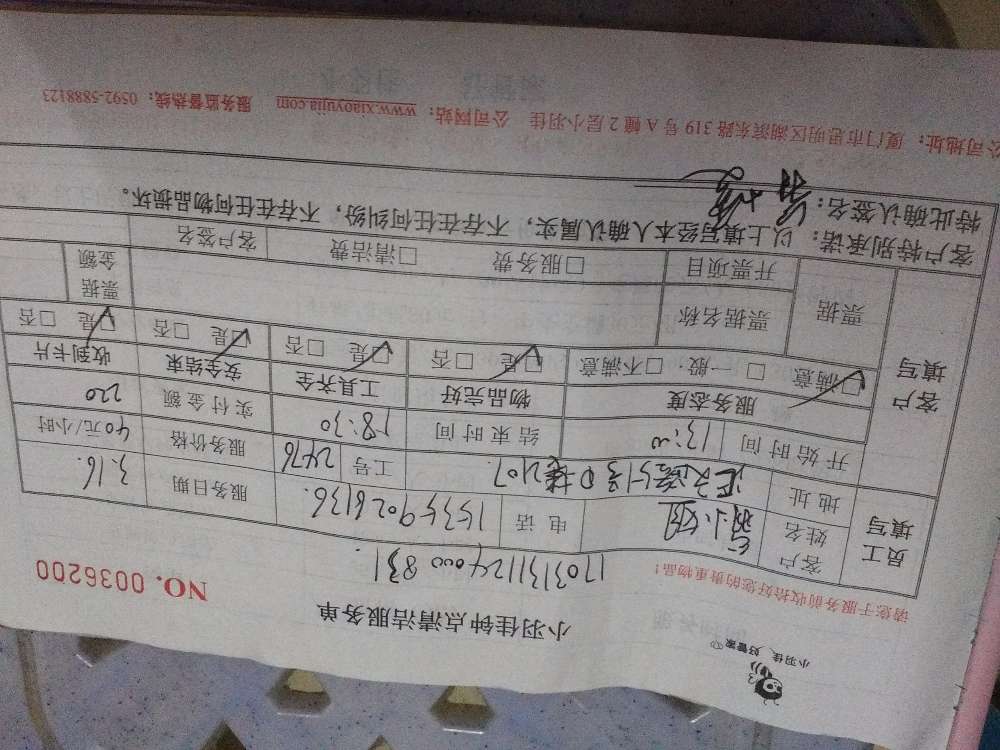 小羽佳，好管家
小羽佳钟点清洁服务单
请您于服务前收拾好您的贵重物品！
NO. 0036200
170313112400831
员工填写
客户姓名 小姐 电话 15359026136 服务日期 3.16
地址 号D楼2107 工号 2476 服务价格 40元/小时
客户填写
开始时间 13:00 结束时间 18:30 实付金额 220
服务态度 物品完好 工具齐全 安全结束 收到卡片
☑满意 □一般 □不满意 ☑是 □否 ☑是 □否 ☑是 □否 ☑是 □否
票据 票据名称 票据金额
开票项目 □服务费 □清洁费 客户签名
客户特别承诺：以上填写经本人确认属实，不存在任何纠纷，不存在任何物品损坏。
特此确认签名：
公司地址：厦门市思明区湖滨东路319号A幢2层小羽佳 公司网站：www.xiaoyujia.com 服务监督热线：0592-5888123